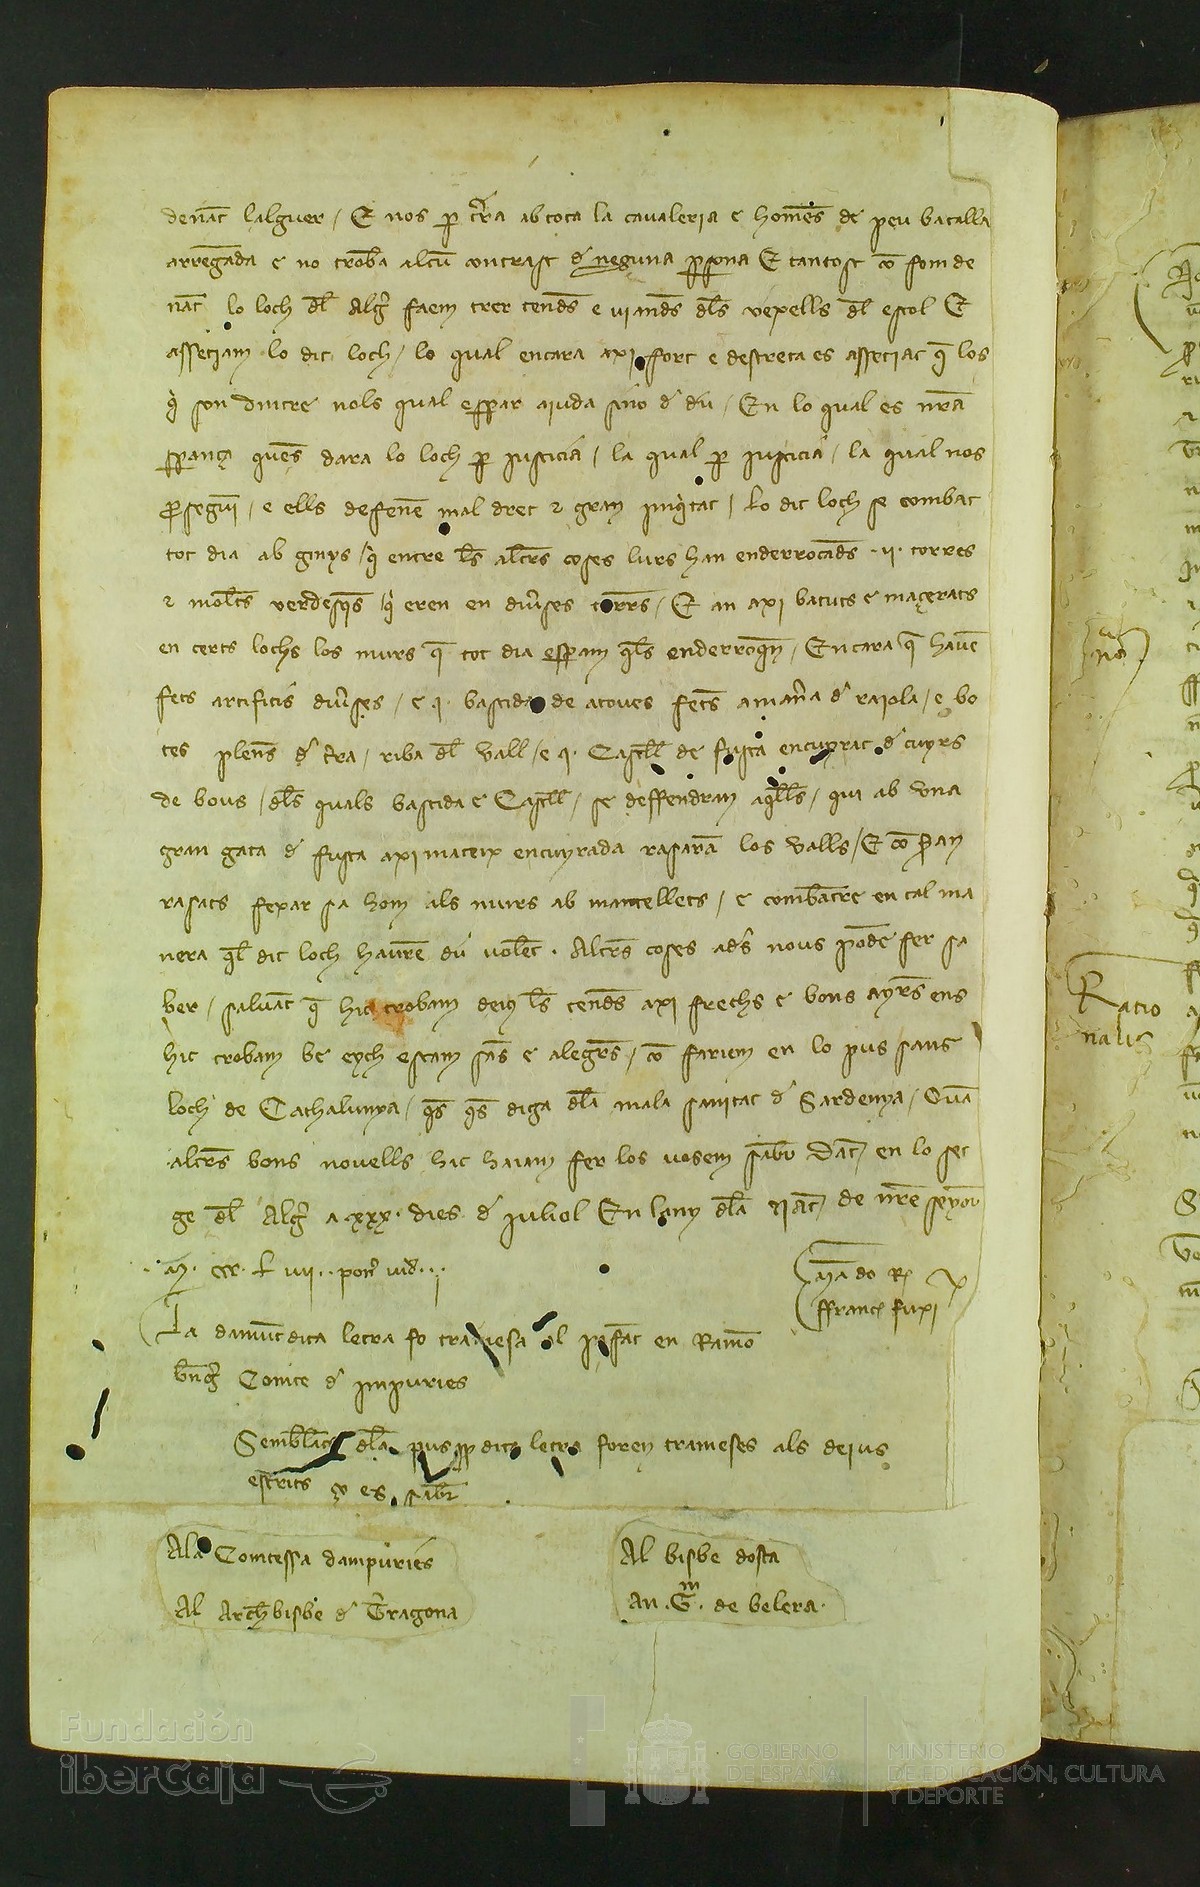 denāt lalguer / E nos p t̄ra ab tota la cavaleria e homēs de peu batalla
arregāda e no trobā alcū contrast d neguna psona E tantost cō fom de
nāt lo loch dl Algr faem trer tendēs e viandēs dls vexells dl estol E
assetiam lo dit loch / lo qual encara axi fort e destreta es assetiat q̄ los
q̄ son dintre nols qual esperar aiuda sinō d dū / En lo qual es nrā
sperança quēs dara lo loch p iusticia / la qual p iusticia / la qual nos
psegui / e ells defenē mal dret e gran iniqtat / Lo dit loch se combat
tot dia ab ginys / q̄ entre ls altrēs coses lurs han enderrocadēs .ii. torres
e moltēs verdesqēs / q̄ eren en divses torrēs / E an axi batuts e maçerats
en certs lochs los murs q̄ tot dia esperam qls enderroqn / Encara q̄ havē
fets artificis divses / e .i. bastida de atoves fetēs a manra d raiola / e bo
tes plenēs d tra / riba dl vall / e .i. Castell de fusta encuyrat d cuyrs
de bous / dls quals bastida e Castell / se deffendran aqlls / qui ab vna
gran gata d fusta axi mateix encuyrada rasarā los valls / E cō seran
rasats fexar sa hom als murs ab mantellets / e combatre en tal ma
nera ql dit loch haurē dū volēt . Altrēs coses adēs nous podē fer sa
ber / salvāt q̄ hic trobam deius ls tendēs axi frechs e bons ayrēs ens
hic trobam be eych estam sās e alegrēs / cō fariem en lo pus sans
loch de Cathalunya / qs qs diga dla mala sanitat d Sardenya / Quā
altrēs bons novells hic haiam fer los vosem sabr Dat en lo set
ge dl Algr a xxx. dies d juliol En lany dla Nat de nrē senyor
.M. ccc. L iiii . . ponr vid . . .
Mādo R
ffranc fuxi
La damūt dita letra fo tramesa al infāt en Ramō
bngr Comte d impuries
Semblāts dla pus pp dita letra foren trameses als deius
escrits ço es sabr
Ala Comtessa dampuries
Al Archbisbe d Tragona
Al bisbe dosca
An .G.m de belera.
Ratio
nalis
Fundación
iberCaja
GOBIERNO
DE ESPAÑA
MINISTERIO
DE EDUCACIÓN, CULTURA
Y DEPORTE